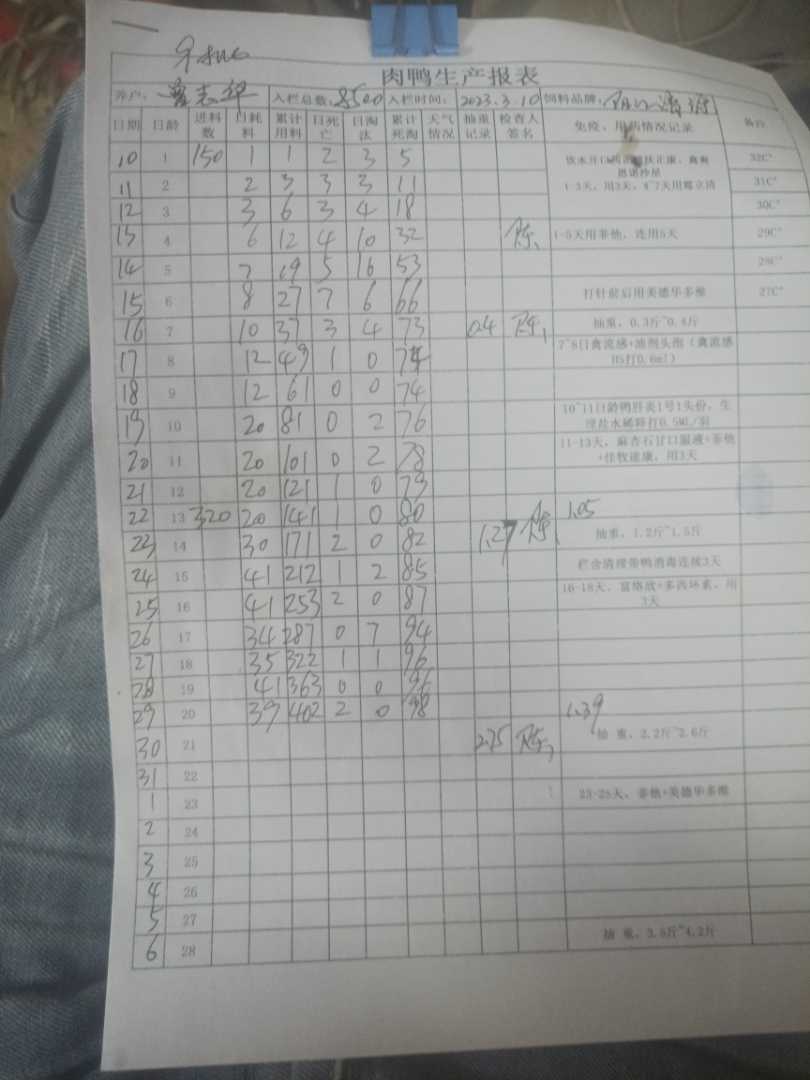 肉鸭生产报表
养户： 入栏总数：8500 入栏时间：2023.3.10 饲料品牌：
日期 日龄 进料数 日耗料 累计用料 日死亡 日淘汰 累计死淘 天气情况 抽重记录 检查人签名 免疫、用药情况记录 备注
10 1 150 1 1 2 3 5 32C°
11 2 2 3 3 3 11 1-3天，用3天， 31C°
12 3 3 6 3 4 18 30C°
13 4 6 12 4 10 32 陈 1-5天用非他，连用5天 29C°
14 5 7 19 5 16 53 28C°
15 6 8 27 7 6 66 打针前后用美德华多维 27C°
16 7 10 37 3 4 73 0.4 陈 抽重，0.3斤~0.4斤
17 8 12 49 1 0 74 7~8日禽流感+油剂头孢（禽流感H5打0.6ml）
18 9 12 61 0 0 74
19 10 20 81 0 2 76 10~11日龄鸭肝炎1号1头份，生理盐水稀释打0.5ML/羽
20 11 20 101 0 2 78 11-13天，麻杏石甘口服液+非他+佳牧速康，用3天
21 12 20 121 1 0 79
22 13 320 20 141 1 0 80 1.05
23 14 30 171 2 0 82 1.27 陈 抽重，1.2斤~1.5斤
24 15 41 212 1 2 85 栏舍清理带鸭消毒连续3天
25 16 41 253 2 0 87 16-18天，富络欣+多西环素，用3天
26 17 34 287 0 7 94
27 18 35 322 1 1 96
28 19 41 363 0 0 96
29 20 39 402 2 0 98 1.39
30 21 2.75 陈 抽重，2.2斤~2.6斤
31 22
1 23 23-25天，非他+美德华多维
2 24
3 25
4 26
5 27
6 28 抽重，3.8斤~4.2斤